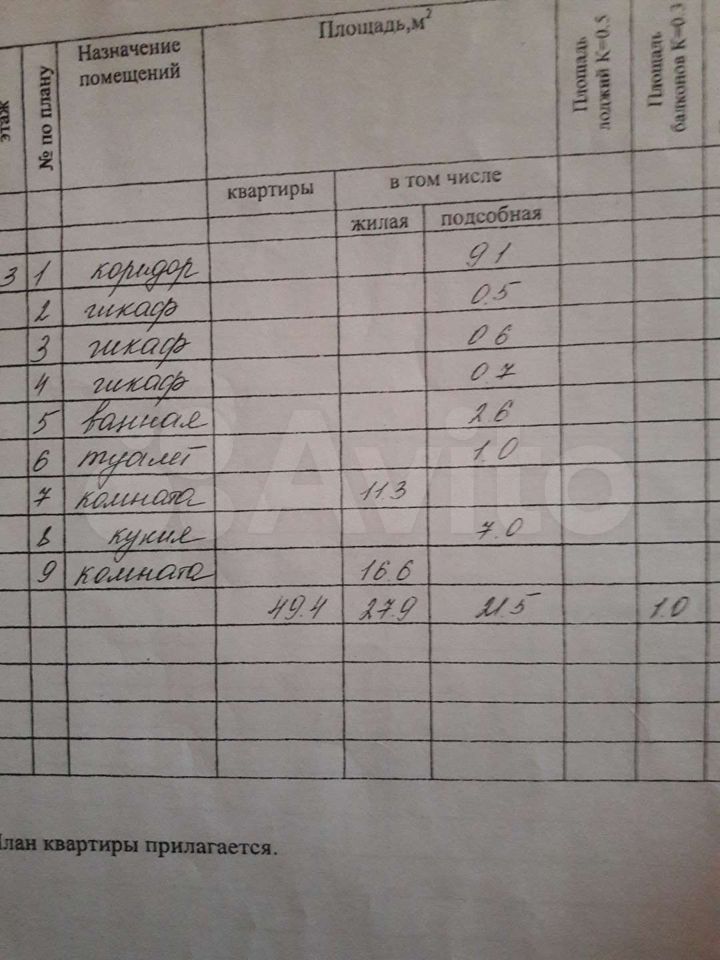 этаж
№ по плану
Назначение
помещений
Площадь,м²
Площадь
лоджий К=0.5
Площадь
балконов К=0.3
квартиры
в том числе
жилая подсобная
3 1 коридор 9 1
2 шкаф 0.5
3 шкаф 0 6
4 шкаф 0.7
5 ванная 2 6
6 туалет 1.0
7 комната 11.3
8 кухня 7.0
9 комната 16.6
49.4 27.9 21.5 1.0
План квартиры прилагается.
Avito